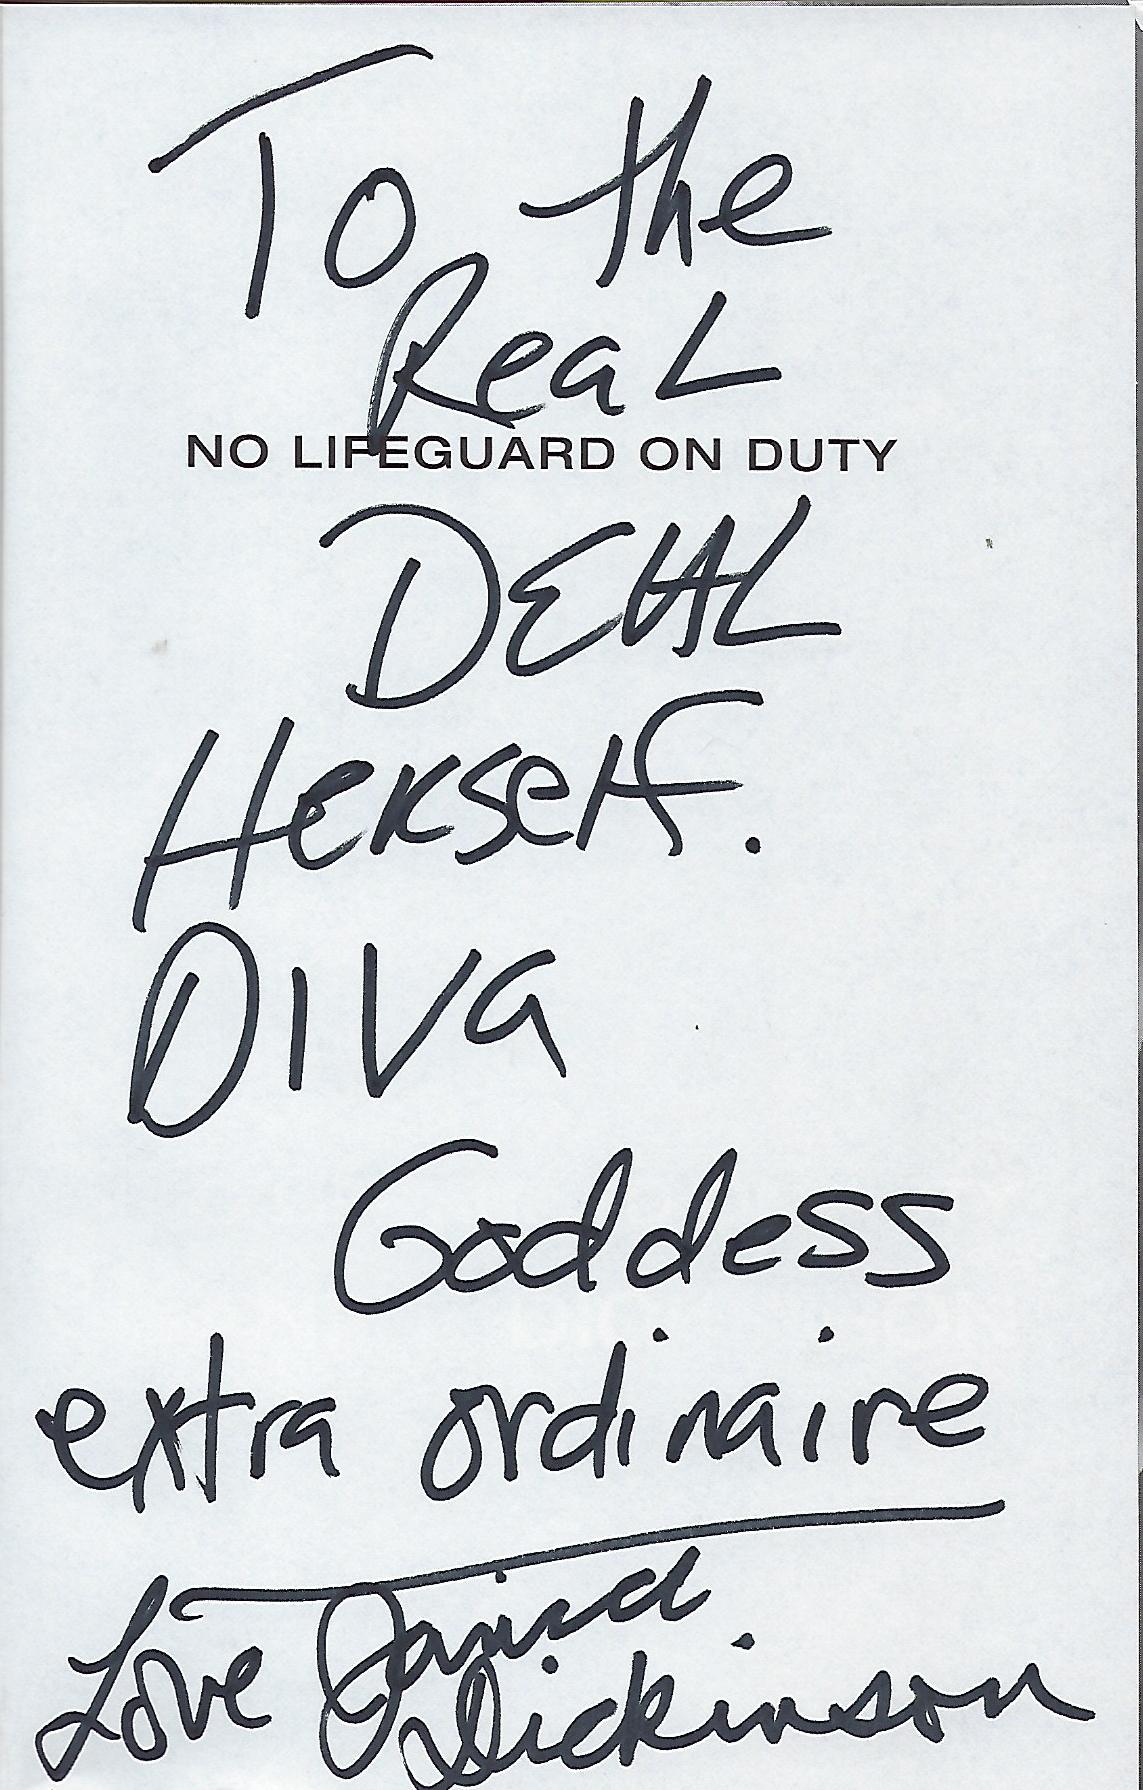 To the
Real
NO LIFEGUARD ON DUTY
DEAL
HERself.
DIVa
Goddess
extra ordinaire
Love Janice
Dickinson